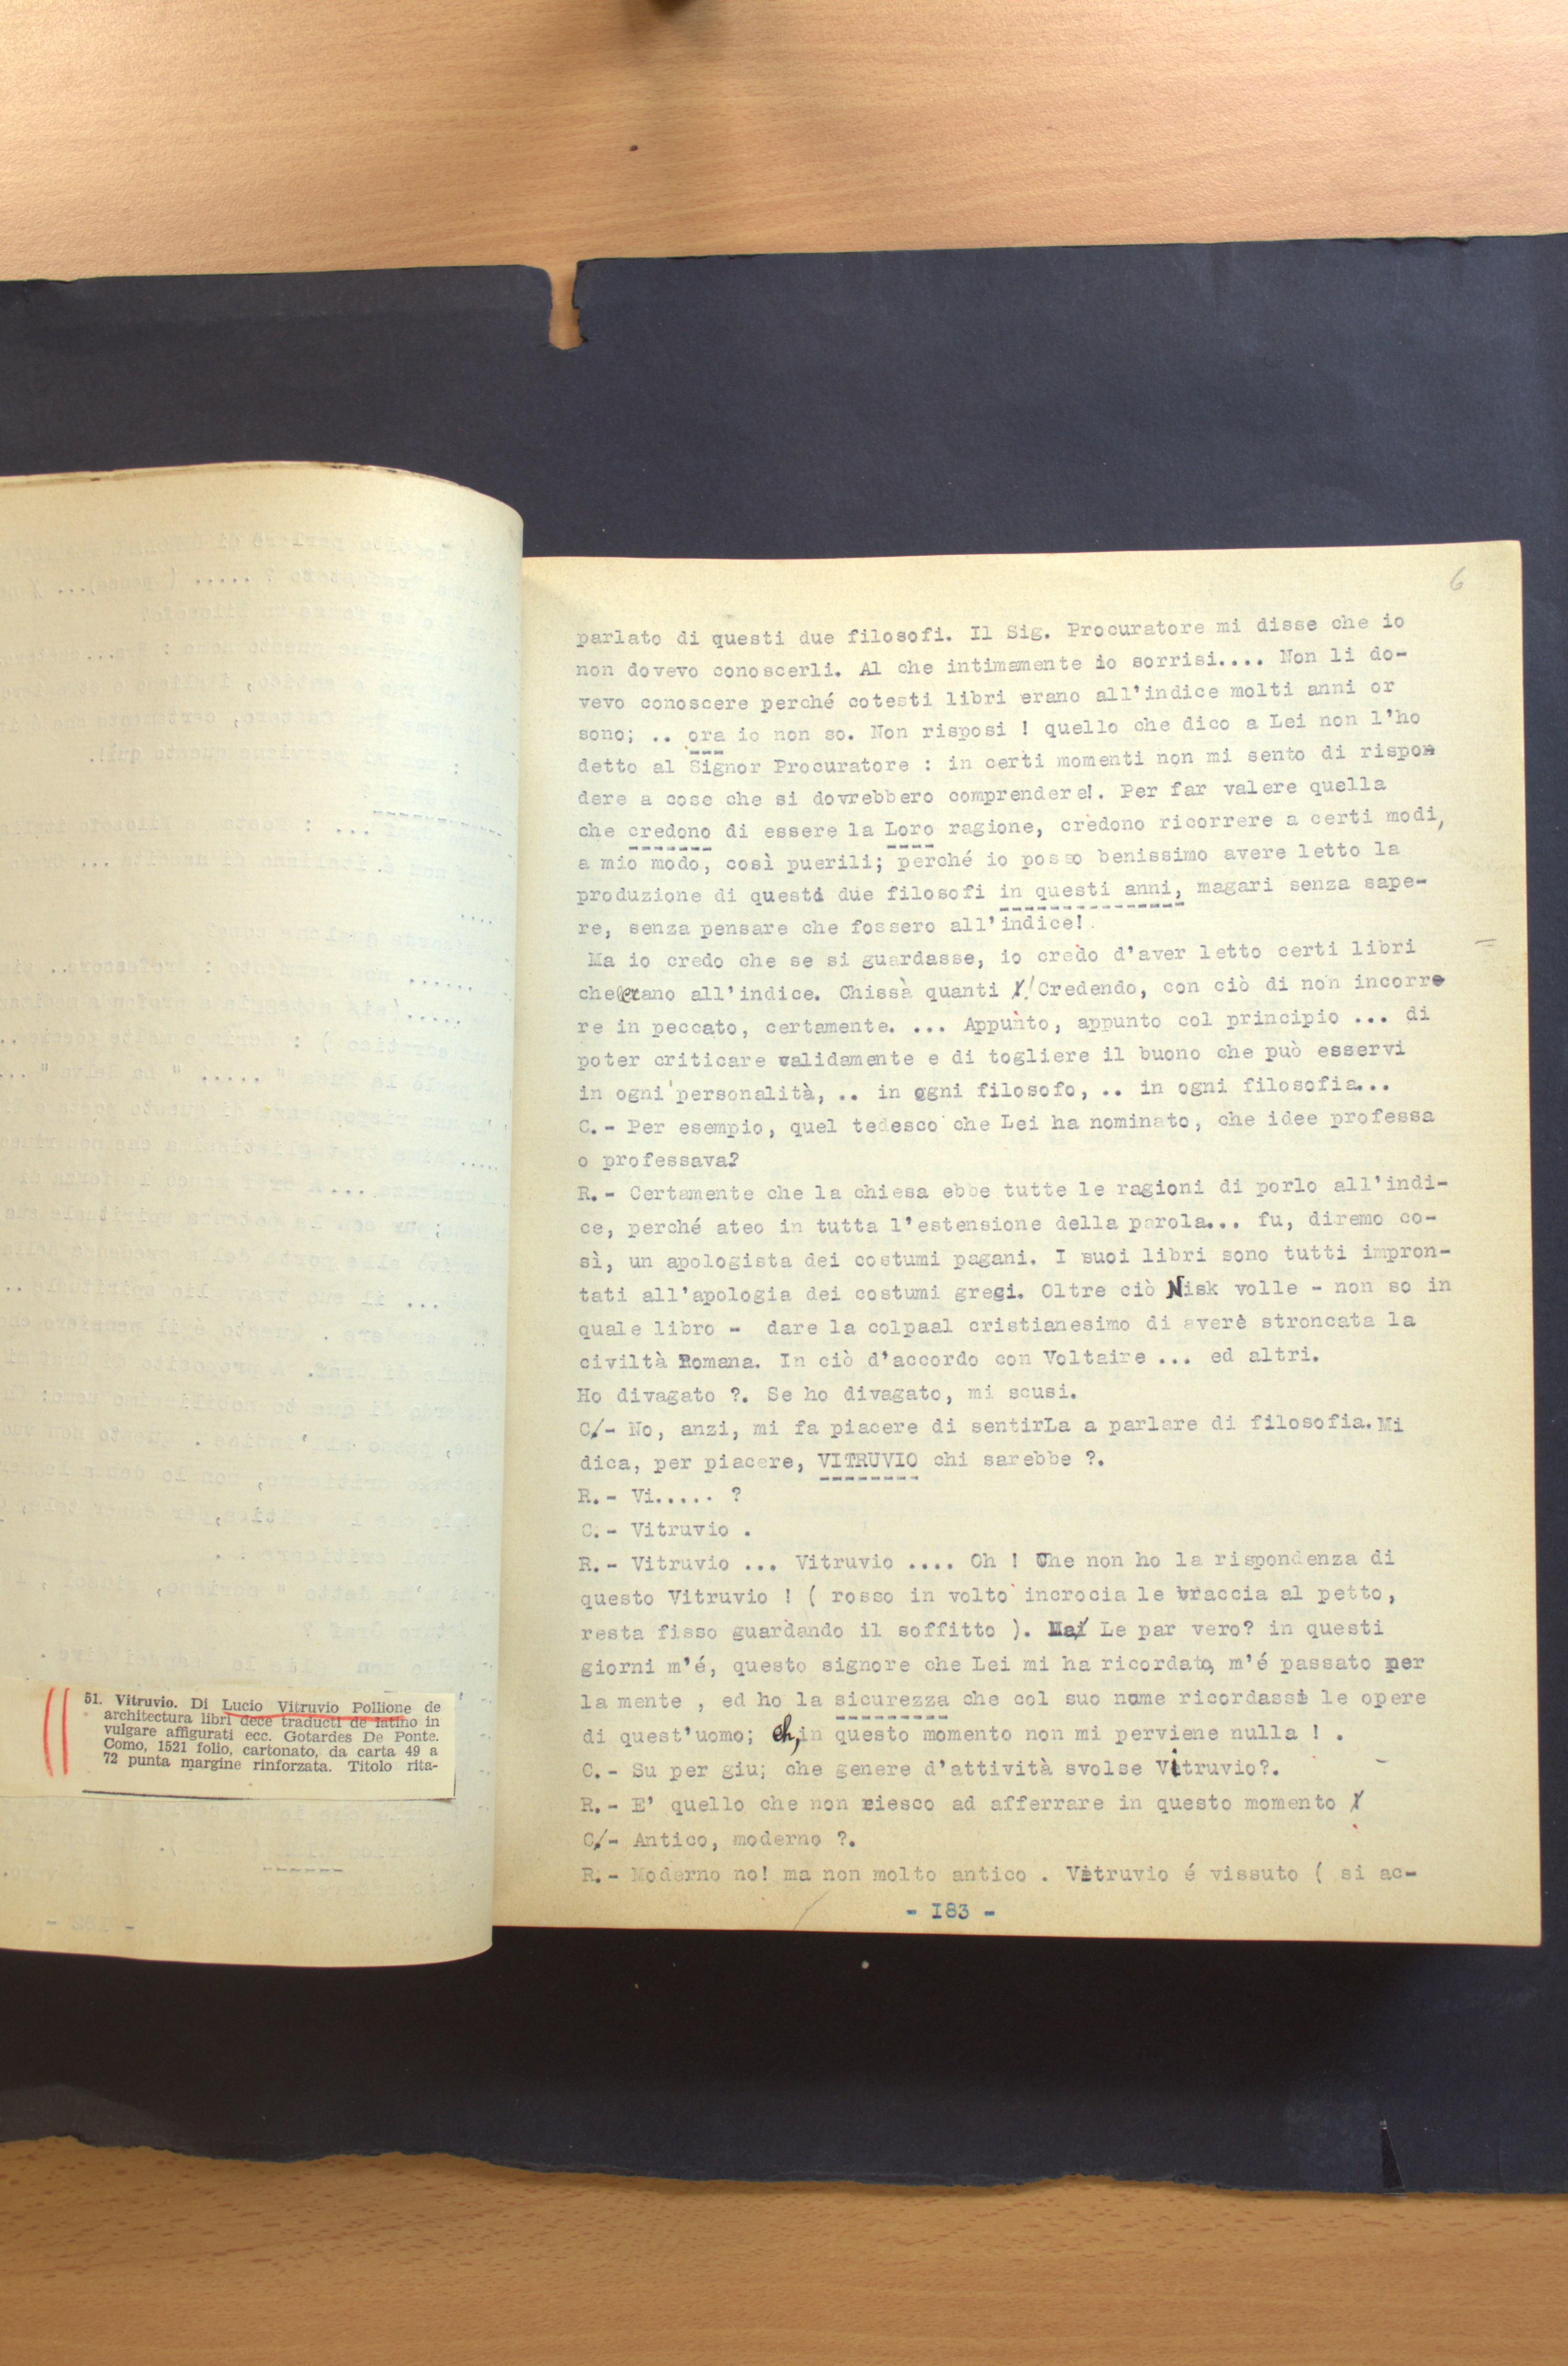 6
parlato di questi due filosofi. Il Sig. Procuratore mi disse che io
non dovevo conoscerli. Al che intimamente io sorrisi.... Non li do-
vevo conoscere perché cotesti libri erano all'indice molti anni or
sono; .. ora io non so. Non risposi ! quello che dico a Lei non l'ho
detto al Signor Procuratore : in certi momenti non mi sento di rispon
dere a cose che si dovrebbero comprendere!. Per far valere quella
che credono di essere la Loro ragione, credono ricorrere a certi modi,
a mio modo, così puerili; perché io posso benissimo avere letto la
produzione di questi due filosofi in questi anni, magari senza sape-
re, senza pensare che fossero all'indice!.
Ma io credo che se si guardasse, io credo d'aver letto certi libri
che erano all'indice. Chissà quanti ! Credendo, con ciò di non incorre
re in peccato, certamente. ... Appunto, appunto col principio ... di
poter criticare validamente e di togliere il buono che può esservi
in ogni personalità, .. in ogni filosofo, .. in ogni filosofia...
C.- Per esempio, quel tedesco che Lei ha nominato, che idee professa
o professava?
R.- Certamente che la chiesa ebbe tutte le ragioni di porlo all'indi-
ce, perché ateo in tutta l'estensione della parola... fu, diremo co-
sì, un apologista dei costumi pagani. I suoi libri sono tutti impron-
tati all'apologia dei costumi greci. Oltre ciò Nisk volle - non so in
quale libro - dare la colpaal cristianesimo di avere stroncata la
civiltà Romana. In ciò d'accordo con Voltaire ... ed altri.
Ho divagato ?. Se ho divagato, mi scusi.
C.- No, anzi, mi fa piacere di sentirLa a parlare di filosofia. Mi
dica, per piacere, VITRUVIO chi sarebbe ?.
R.- Vi..... ?
C.- Vitruvio .
R.- Vitruvio ... Vitruvio .... Oh ! Che non ho la rispondenza di
questo Vitruvio ! ( rosso in volto incrocia le braccia al petto,
resta fisso guardando il soffitto ). Ma Le par vero? in questi
giorni m'é, questo signore che Lei mi ha ricordato, m'é passato per
la mente , ed ho la sicurezza che col suo nome ricordassi le opere
di quest'uomo; eh, in questo momento non mi perviene nulla ! .
C.- Su per giu; che genere d'attività svolse Vitruvio?.
R.- E' quello che non riesco ad afferrare in questo momento
C.- Antico, moderno ?.
R.- Moderno no! ma non molto antico . Vitruvio é vissuto ( si ac-
- I83 -
51. Vitruvio. Di Lucio Vitruvio Pollione de
architectura libri dece traducti de latino in
vulgare affigurati ecc. Gotardes De Ponte.
Como, 1521 folio, cartonato, da carta 49 a
72 punta margine rinforzata. Titolo rita-